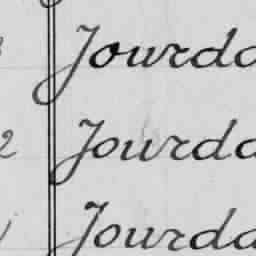 Jourda
2 Jourda
Jourda